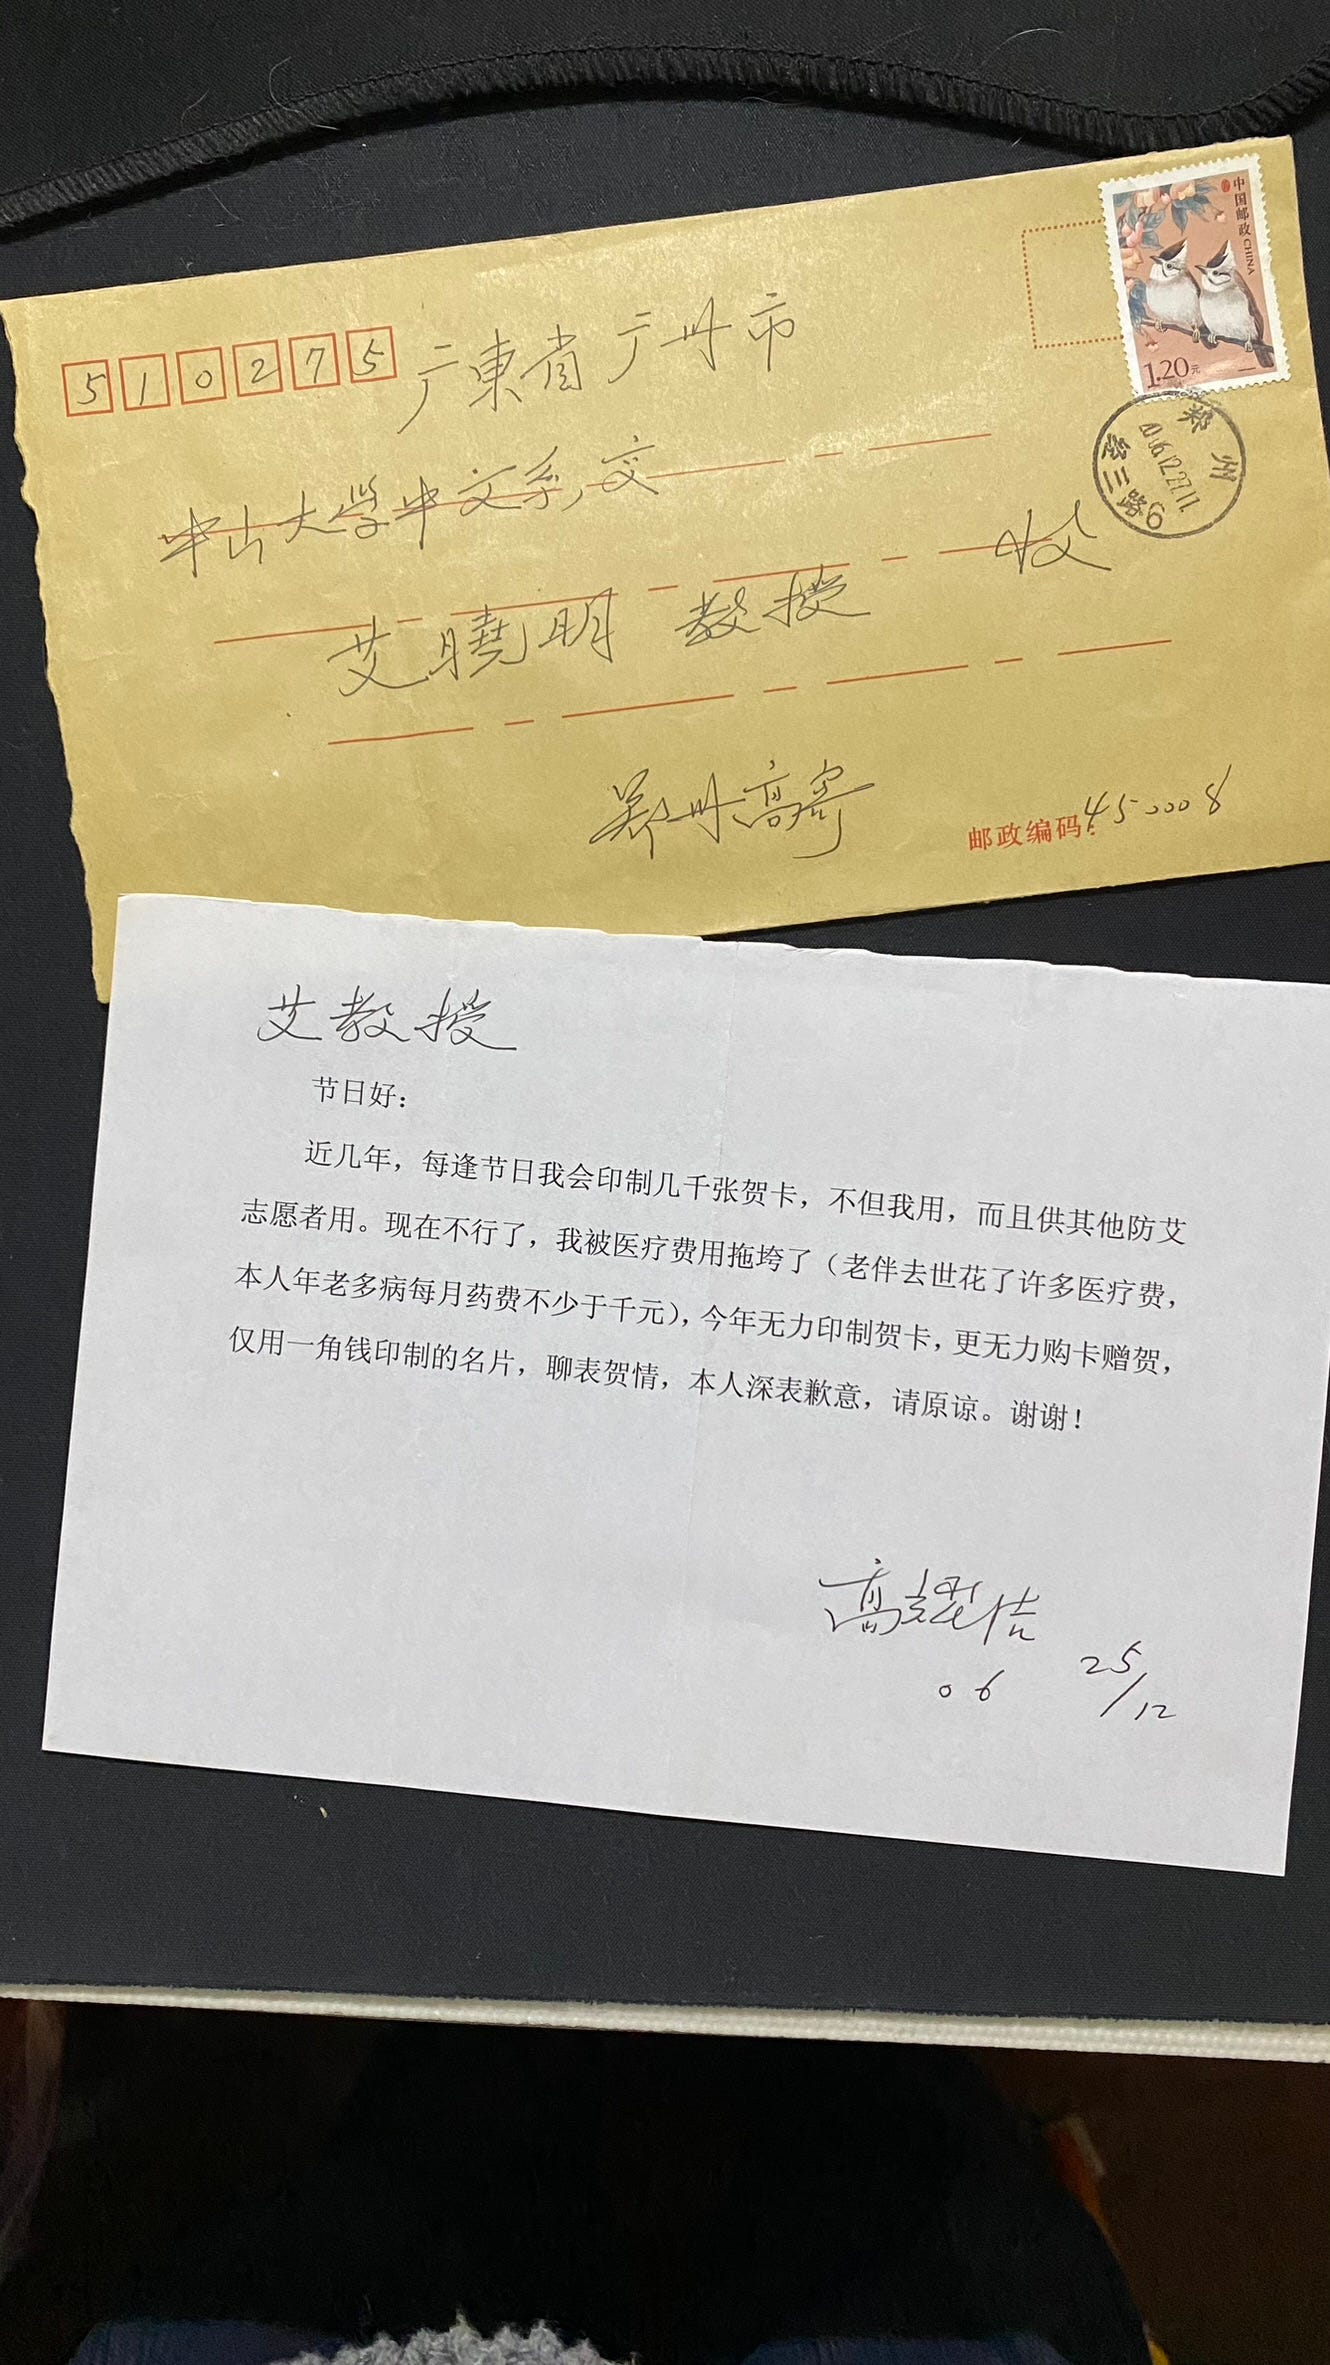 中国邮政 CHINA
1.20元
郑州
2006.12.27.11
510275
广東省广州市
中山大学中文系,交
艾曉明 教授 收
郑州高寄
邮政编码:450008
艾教授
节日好:
近几年，每逢节日我会印制几千张贺卡，不但我用，而且供其他防艾
志愿者用。现在不行了，我被医疗费用拖垮了（老伴去世花了许多医疗费，
本人年老多病每月药费不少于千元），今年无力印制贺卡，更无力购卡赠贺，
仅用一角钱印制的名片，聊表贺情，本人深表歉意，请原谅。谢谢！
高耀洁
06 25/12